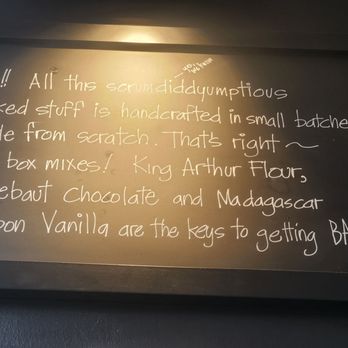 !! All this scrumdiddyumptious
ked stuff is handcrafted in small batche
de from scratch. That's right ~
box mixes! King Arthur Flour,
ebaut Chocolate and Madagascar
bon Vanilla are the keys to getting BA